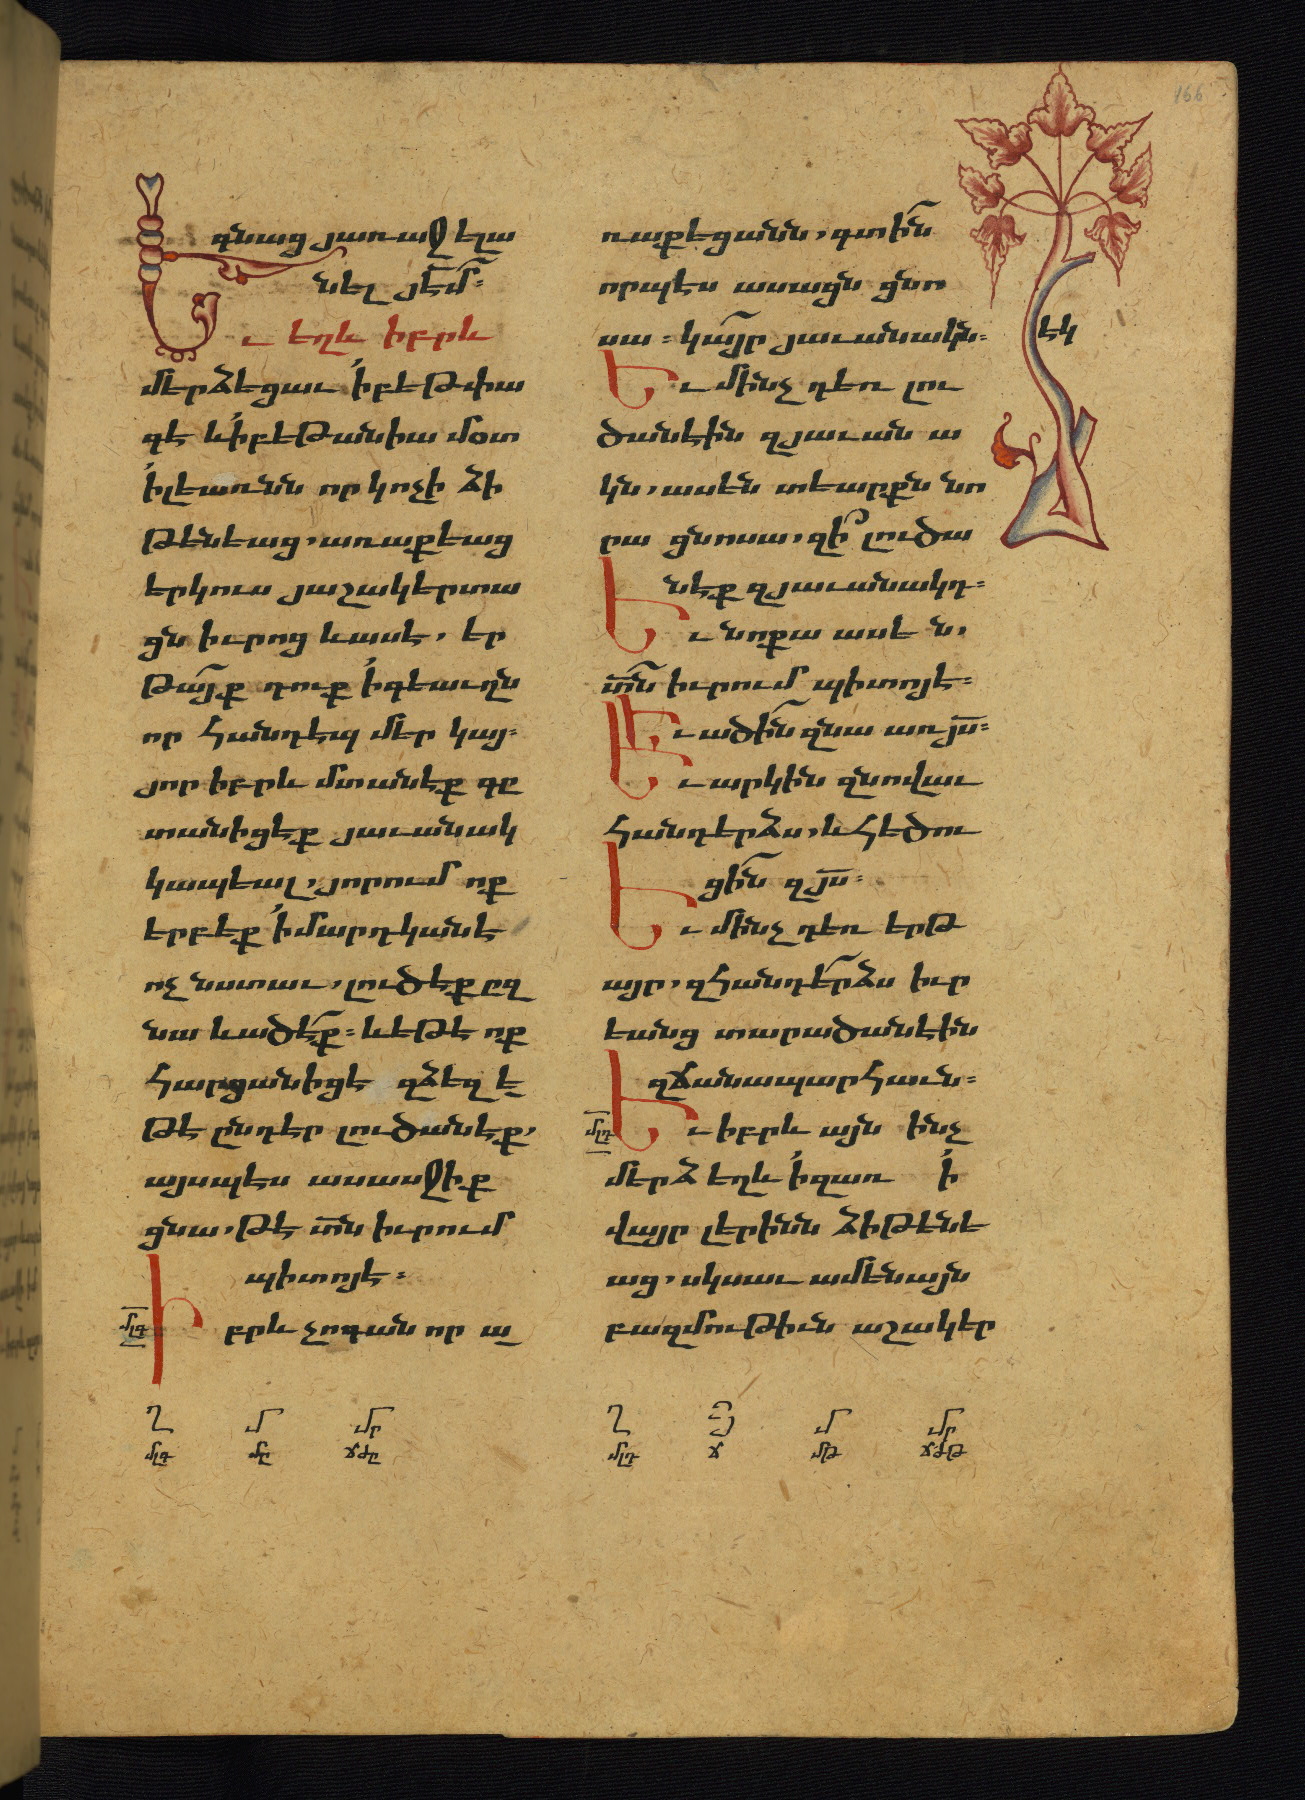 գնաց յառաջ ելա
նել յԷմ։
և եղև իբրև
մերձեցաւ ի բեթփա
գէ և ի բեթանիա մօտ
ի լեառնն որ կոչի ձի
թենեաց, առաքեաց
երկուս յաշակերտա
ցն իւրոց և ասէ, եր
թայք դուք ի գեաւղն
որ հանդէպ մեր կայ։
յոր իբրև մտանէք գը
տանիցէք յաւանակ
կապեալ, յորում ոք
երբեք ի մարդկանէ
ոչ նստաւ, լուծէք ըզ
նա և ածէք։ և եթէ ոք
հարցանիցէ զձեզ է
թէ ընդէր լուծանէք,
այսպէս ասասջիք
ցնա, թէ տն իւրում
պիտոյէ։
մլգ
Իբրև չոգան որ ա
ռաքեցանն, գտին
որպէս ասացն ցնո
սա։ կայր յաւանակն։
էկ
Եւ մինչ դեռ լու
ծանէին զյաւան ա
կն, ասեն տեարքն նո
րա ցնոսա, զի լուծա
նէք զյաւանակդ։
Եւ նոքա ասեն,
տն իւրում պիտոյէ։
Եւ ածին զնա առ յս։
Եւ արկին զնովաւ
հանդերձս, և հեծու
ցին զյս։
Եւ մինչ դեռ երթ
այր, զհանդերձս իւր
եանց տարածանէին
զճանապարհաւն։
մլդ
Եւ իբրև այն ինչ
մերձ եղև ի զառ ի
վայր լերինն ձիթենե
աց, սկսաւ ամենայն
բազմութիւն աշակեր
Ղ Մ Մր
մլգ մը ճժը
Ղ Յ Մ Մր
մլդ ճ մթ ճժթ